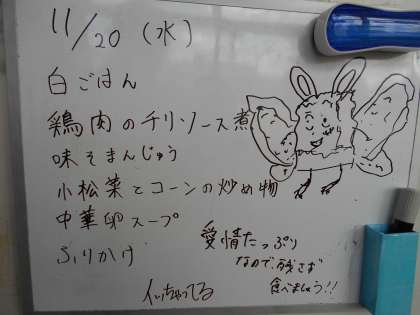 11/20 (水)
白ごはん
鶏肉のチリソース煮
味そまんじゅう
小松菜とコーンの炒め物
中華卵スープ
ふりかけ
愛情たっぷり
なので、残さず
食べましょう!!
イッちゃってる